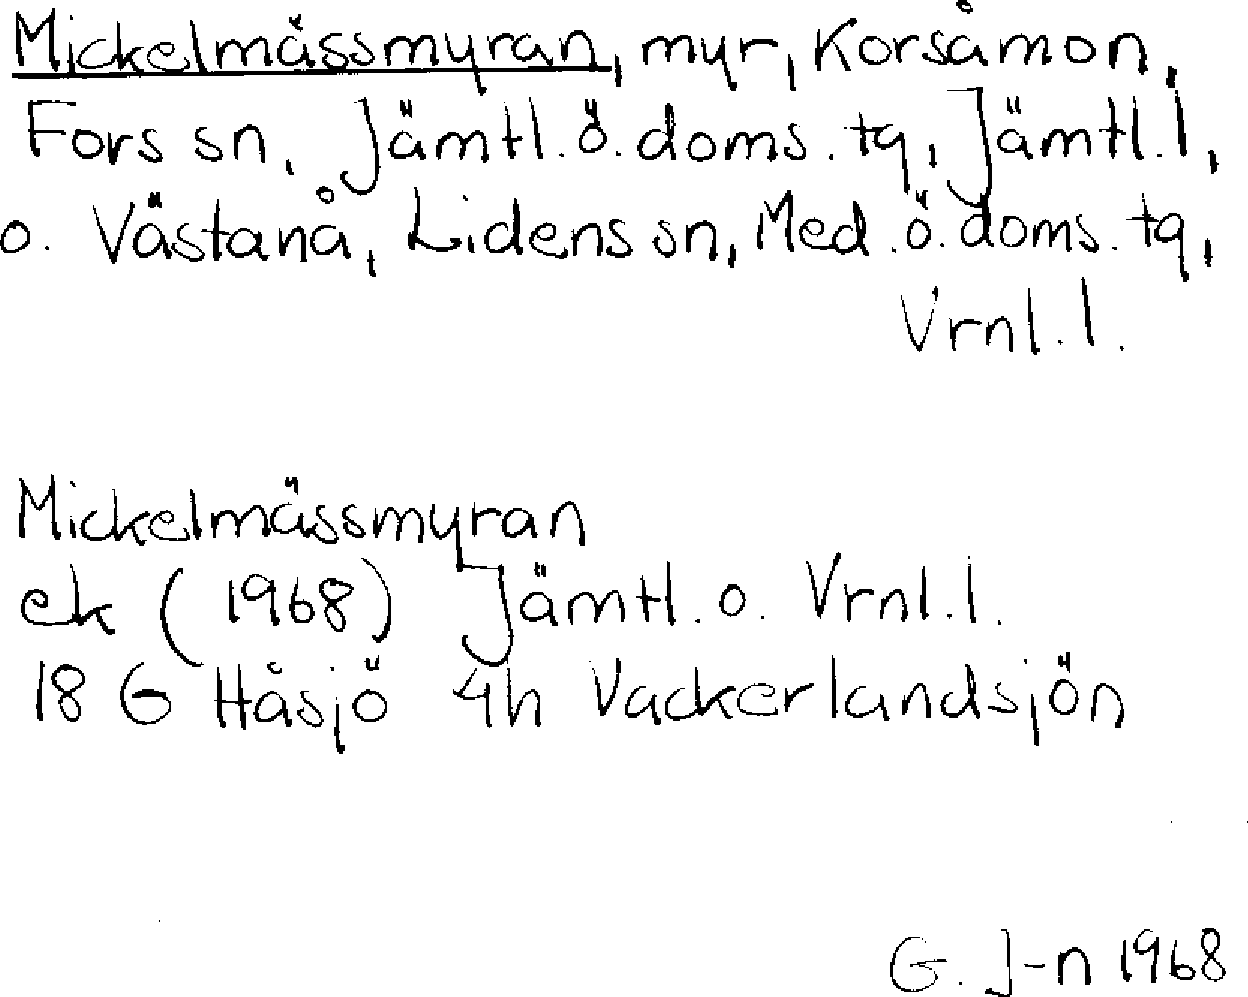 Mickelmässmyran, myr, Korsåmon,
Fors sn, Jämtl.ö.doms.tg, Jämtl.l,
o. Västanå, Lidens sn, Med.ö.doms.tg,
Vrnl.l.
Mickelmässmyran
ek (1968) Jämtl. o. Vrnl.l.
18 G Håsjö 4h Vackerlandsjön
G. J-n 1968